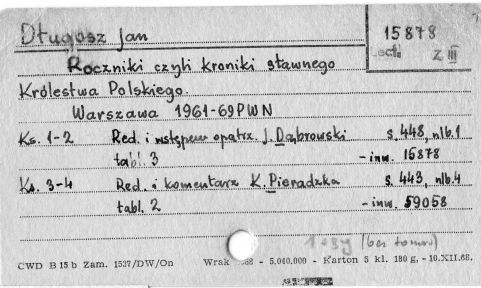 Długosz Jan
15878
Lect. Z III
Roczniki czyli kroniki sławnego
Królestwa Polskiego.
Warszawa 1961-69 PWN
Ks. 1-2 Red. i wstępem opatrz. J. Dąbrowski s. 448, nlb. 1
tabl. 3 - inw. 15878
Ks. 3-4 Red. i komentarz K. Pieradzka s. 443, nlb. 4
tabl. 2 - inw. 59058
1 egz (bez tomów)
CWD B 15 b Zam. 1537/DW/On Wrak - 5.040.000 - Karton 5 kl. 180 g, - 10.XII.68.